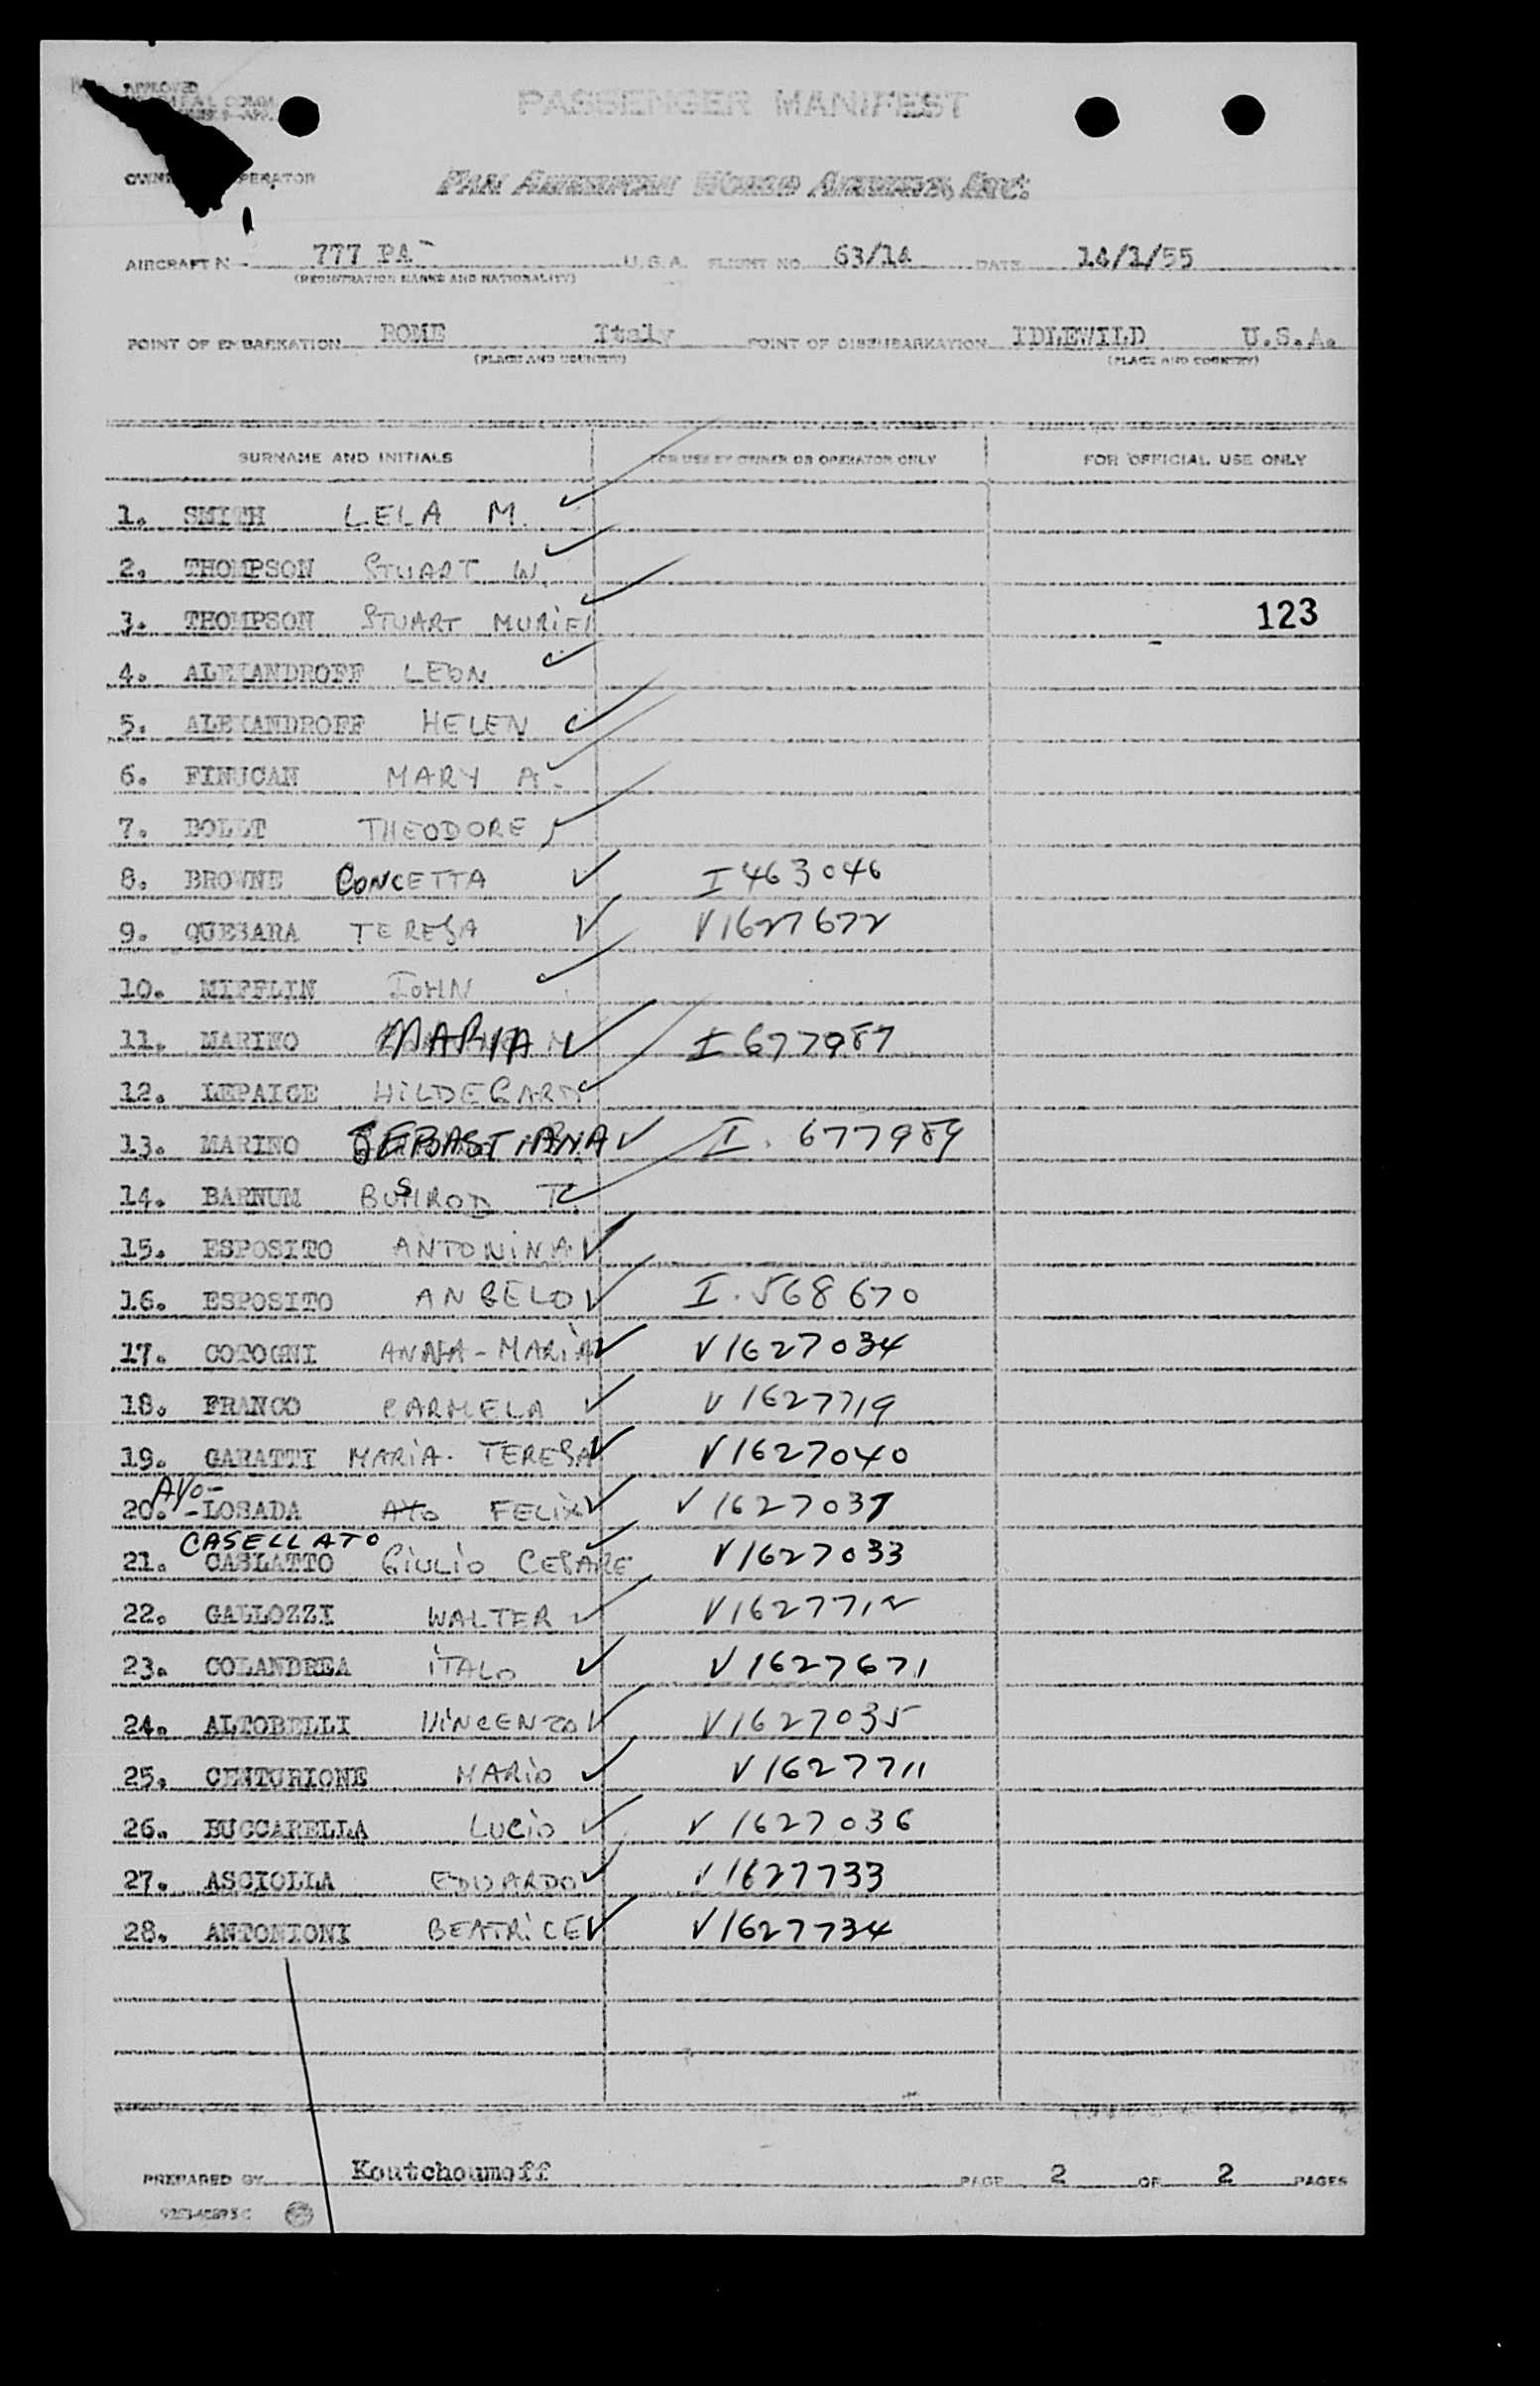 APPROVED
PASSENGER MANIFEST
PAN AMERICAN WORLD AIRWAYS, INC.
AIRCRAFT N- 777 PA U.S.A. FLIGHT NO. 63/14 DATE 14/1/55
(REGISTRATION MARKS AND NATIONALITY)
POINT OF EMBARKATION ROME Italy POINT OF DISEMBARKATION IDLEWILD U.S.A.
(PLACE AND COUNTRY) (PLACE AND COUNTRY)
SURNAME AND INITIALS FOR USE BY OWNER OR OPERATOR ONLY FOR OFFICIAL USE ONLY
1. SMITH LELA M.
2. THOMPSON STUART W.
3. THOMPSON STUART MURIEL 123
4. ALEXANDROFF LEON
5. ALEXANDROFF HELEN
6. FINUCAN MARY A.
7. THEODORE
8. BROWNE CONCETTA I 463046
9. QUESARA TERESA V1627672
10. MIFFLIN IOHN
11. MARINO MARIA I 677987
12. LEPAIGE HILDEGARD
13. MARINO SEBASTIANA I. 677989
14. BARNUM BUSHROD T.
15. ESPOSITO ANTONINA
16. ESPOSITO ANGELO I. 568670
17. COTOGNI ANNA-MARIA V1627034
18. FRANCO CARMELA V 1627719
19. GARATTI MARIA. TERESA V1627040
AYO-
20. -LOSADA AYO FELIX V 1627037
CASELLATO
21. CASLATTO GIULIO CESARE V1627033
22. GALLOZZI WALTER V1627712
23. COLANDREA ITALO V1627671
24. ALTOBELLI VINCENZO V1627035
25. CENTURIONE MARIO V1627711
26. BUCCARELLA LUCIO V 1627036
27. ASCIOLLA EDUARDO V1627733
28. ANTONIONI BEATRICE V1627734
PREPARED BY Koutchoumoff PAGE 2 OF 2 PAGES